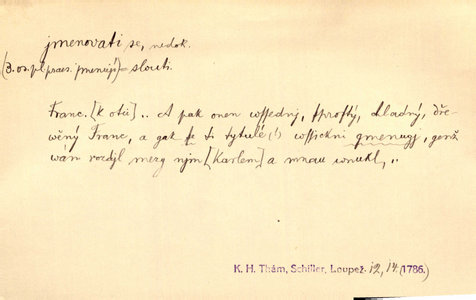 jmenovati se, nedok.
(3. os. pl. praes. jmenují) = slouti.
Franc. [k otci] .. A pak onen wssednj, sprostý, chladný, dře-
wěný Franc, a gak se ti tytulé (!) wssickni gmenugj, genž
wám rozdjl mezy njm [Karlem] a mnau wnukl, ..
K. H. Thám, Schiller, Loupež. 12, 14 (1786.)